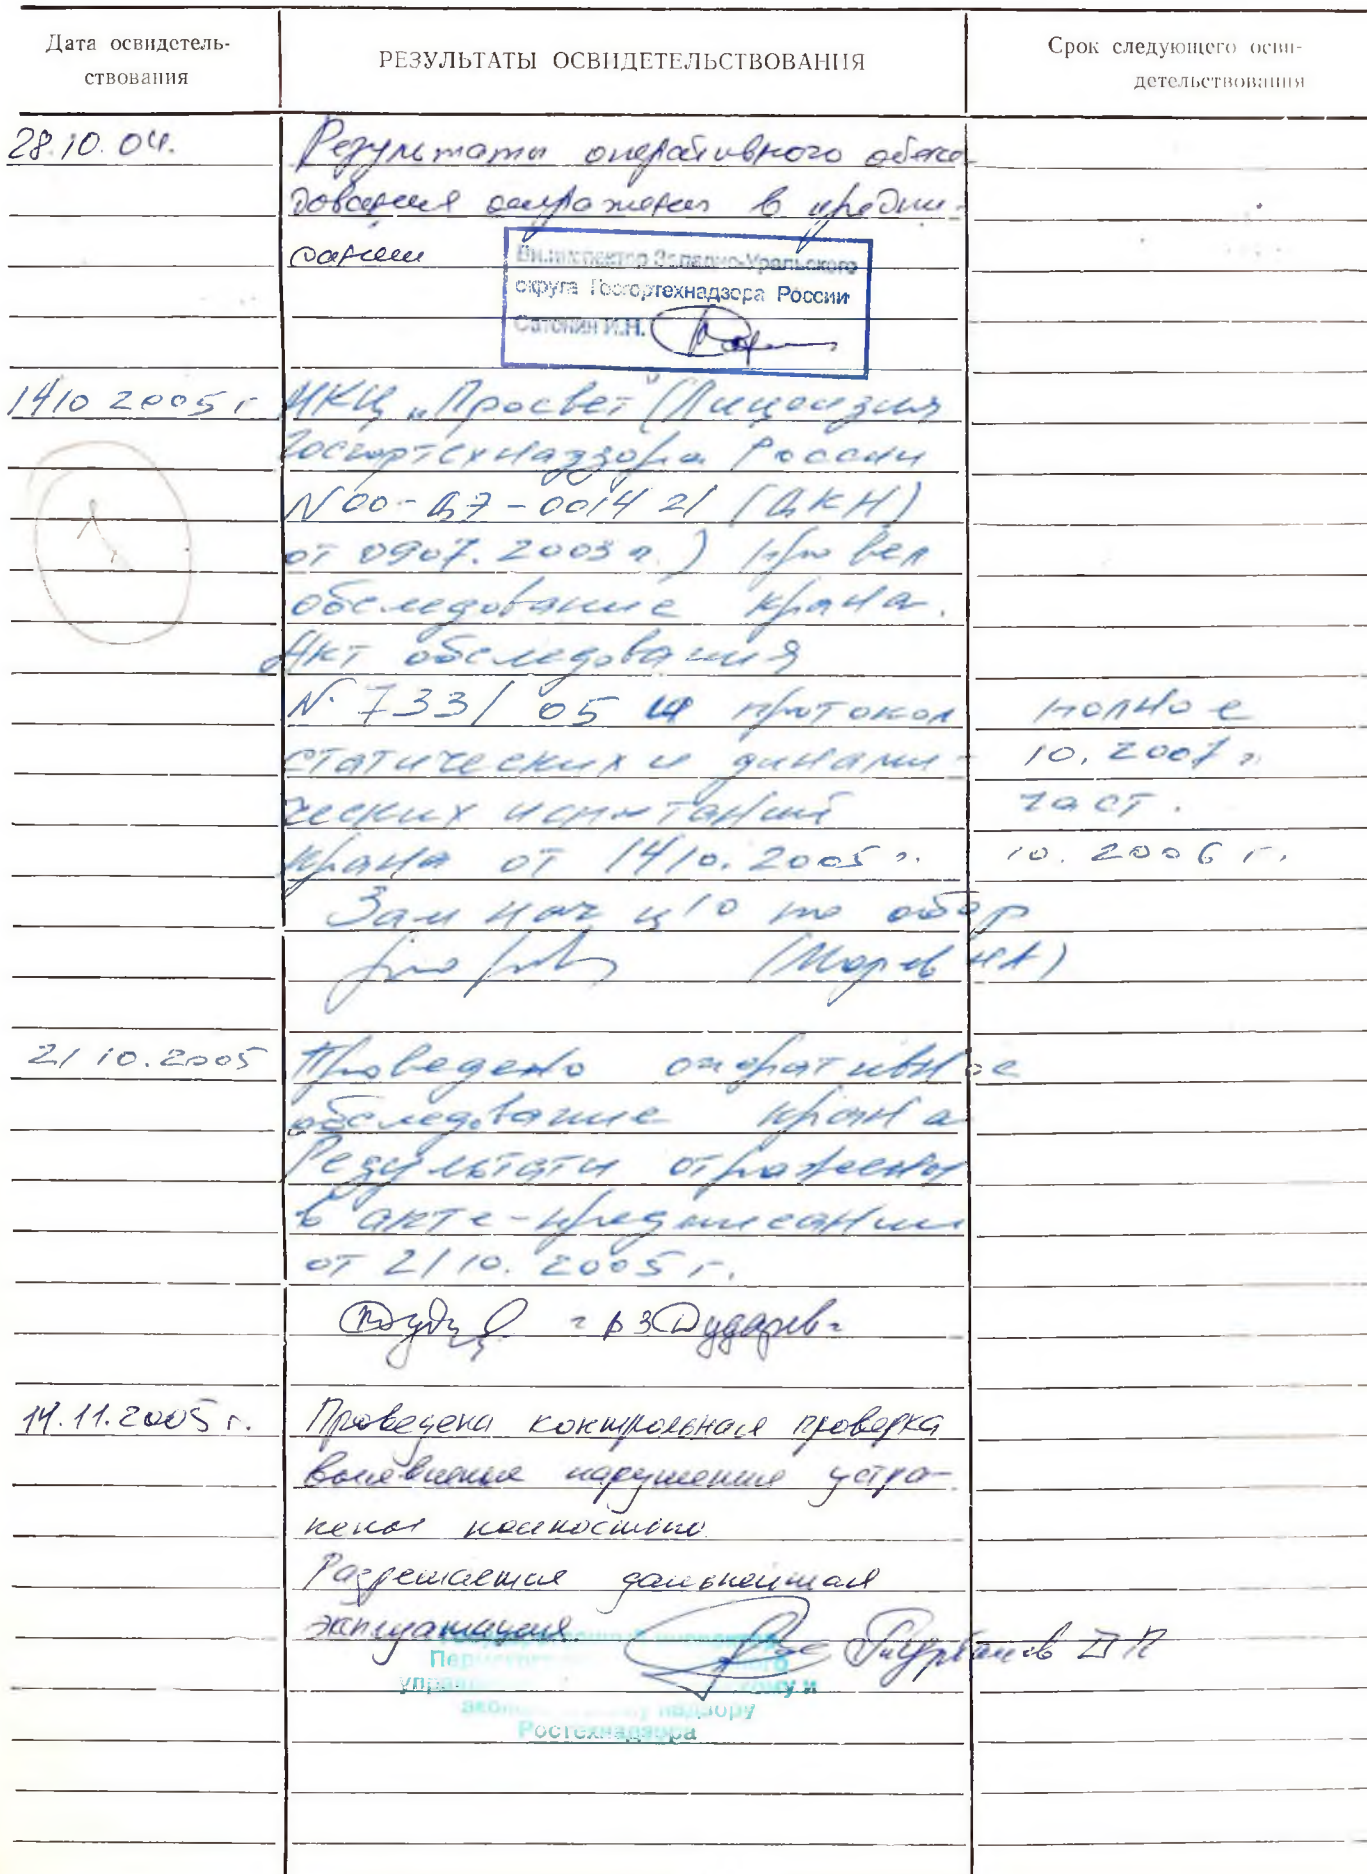 Дата освидетель-
ствования
РЕЗУЛЬТАТЫ ОСВИДЕТЕЛЬСТВОВАНИЯ
Срок следующего осви-
детельствования
28.10.04.
Результаты оперативного обсле-
дования отражены в предпи-
сании
Западно-Уральского
округа Госгортехнадзора России
Сатонин И.Н.
14 10 2005 г
ИКЦ „Просвет" (Лицензия
Госгортехнадзора России
N 00-ДЭ-001421 (ДКН)
от 09 07. 2003 г.) провел
обследование крана.
Акт обследования
N. 733/05 и протокол
полное
статических и динами-
10. 2007 г.
ческих испытаний
част.
крана от 14 10. 2005 г.
10. 2006 г.
Зам нач по обор
21 10. 2005
Проведено оперативное
обследование крана
Результаты отражены
в акте-предписании
от 21 10. 2005 г.
Дударев
14.11.2005 г.
Проведена контрольная проверка
выявленные нарушения устра-
нены полностью
Разрешается дальнейшая
эксплуатация.
надзору
Ростехнадзора